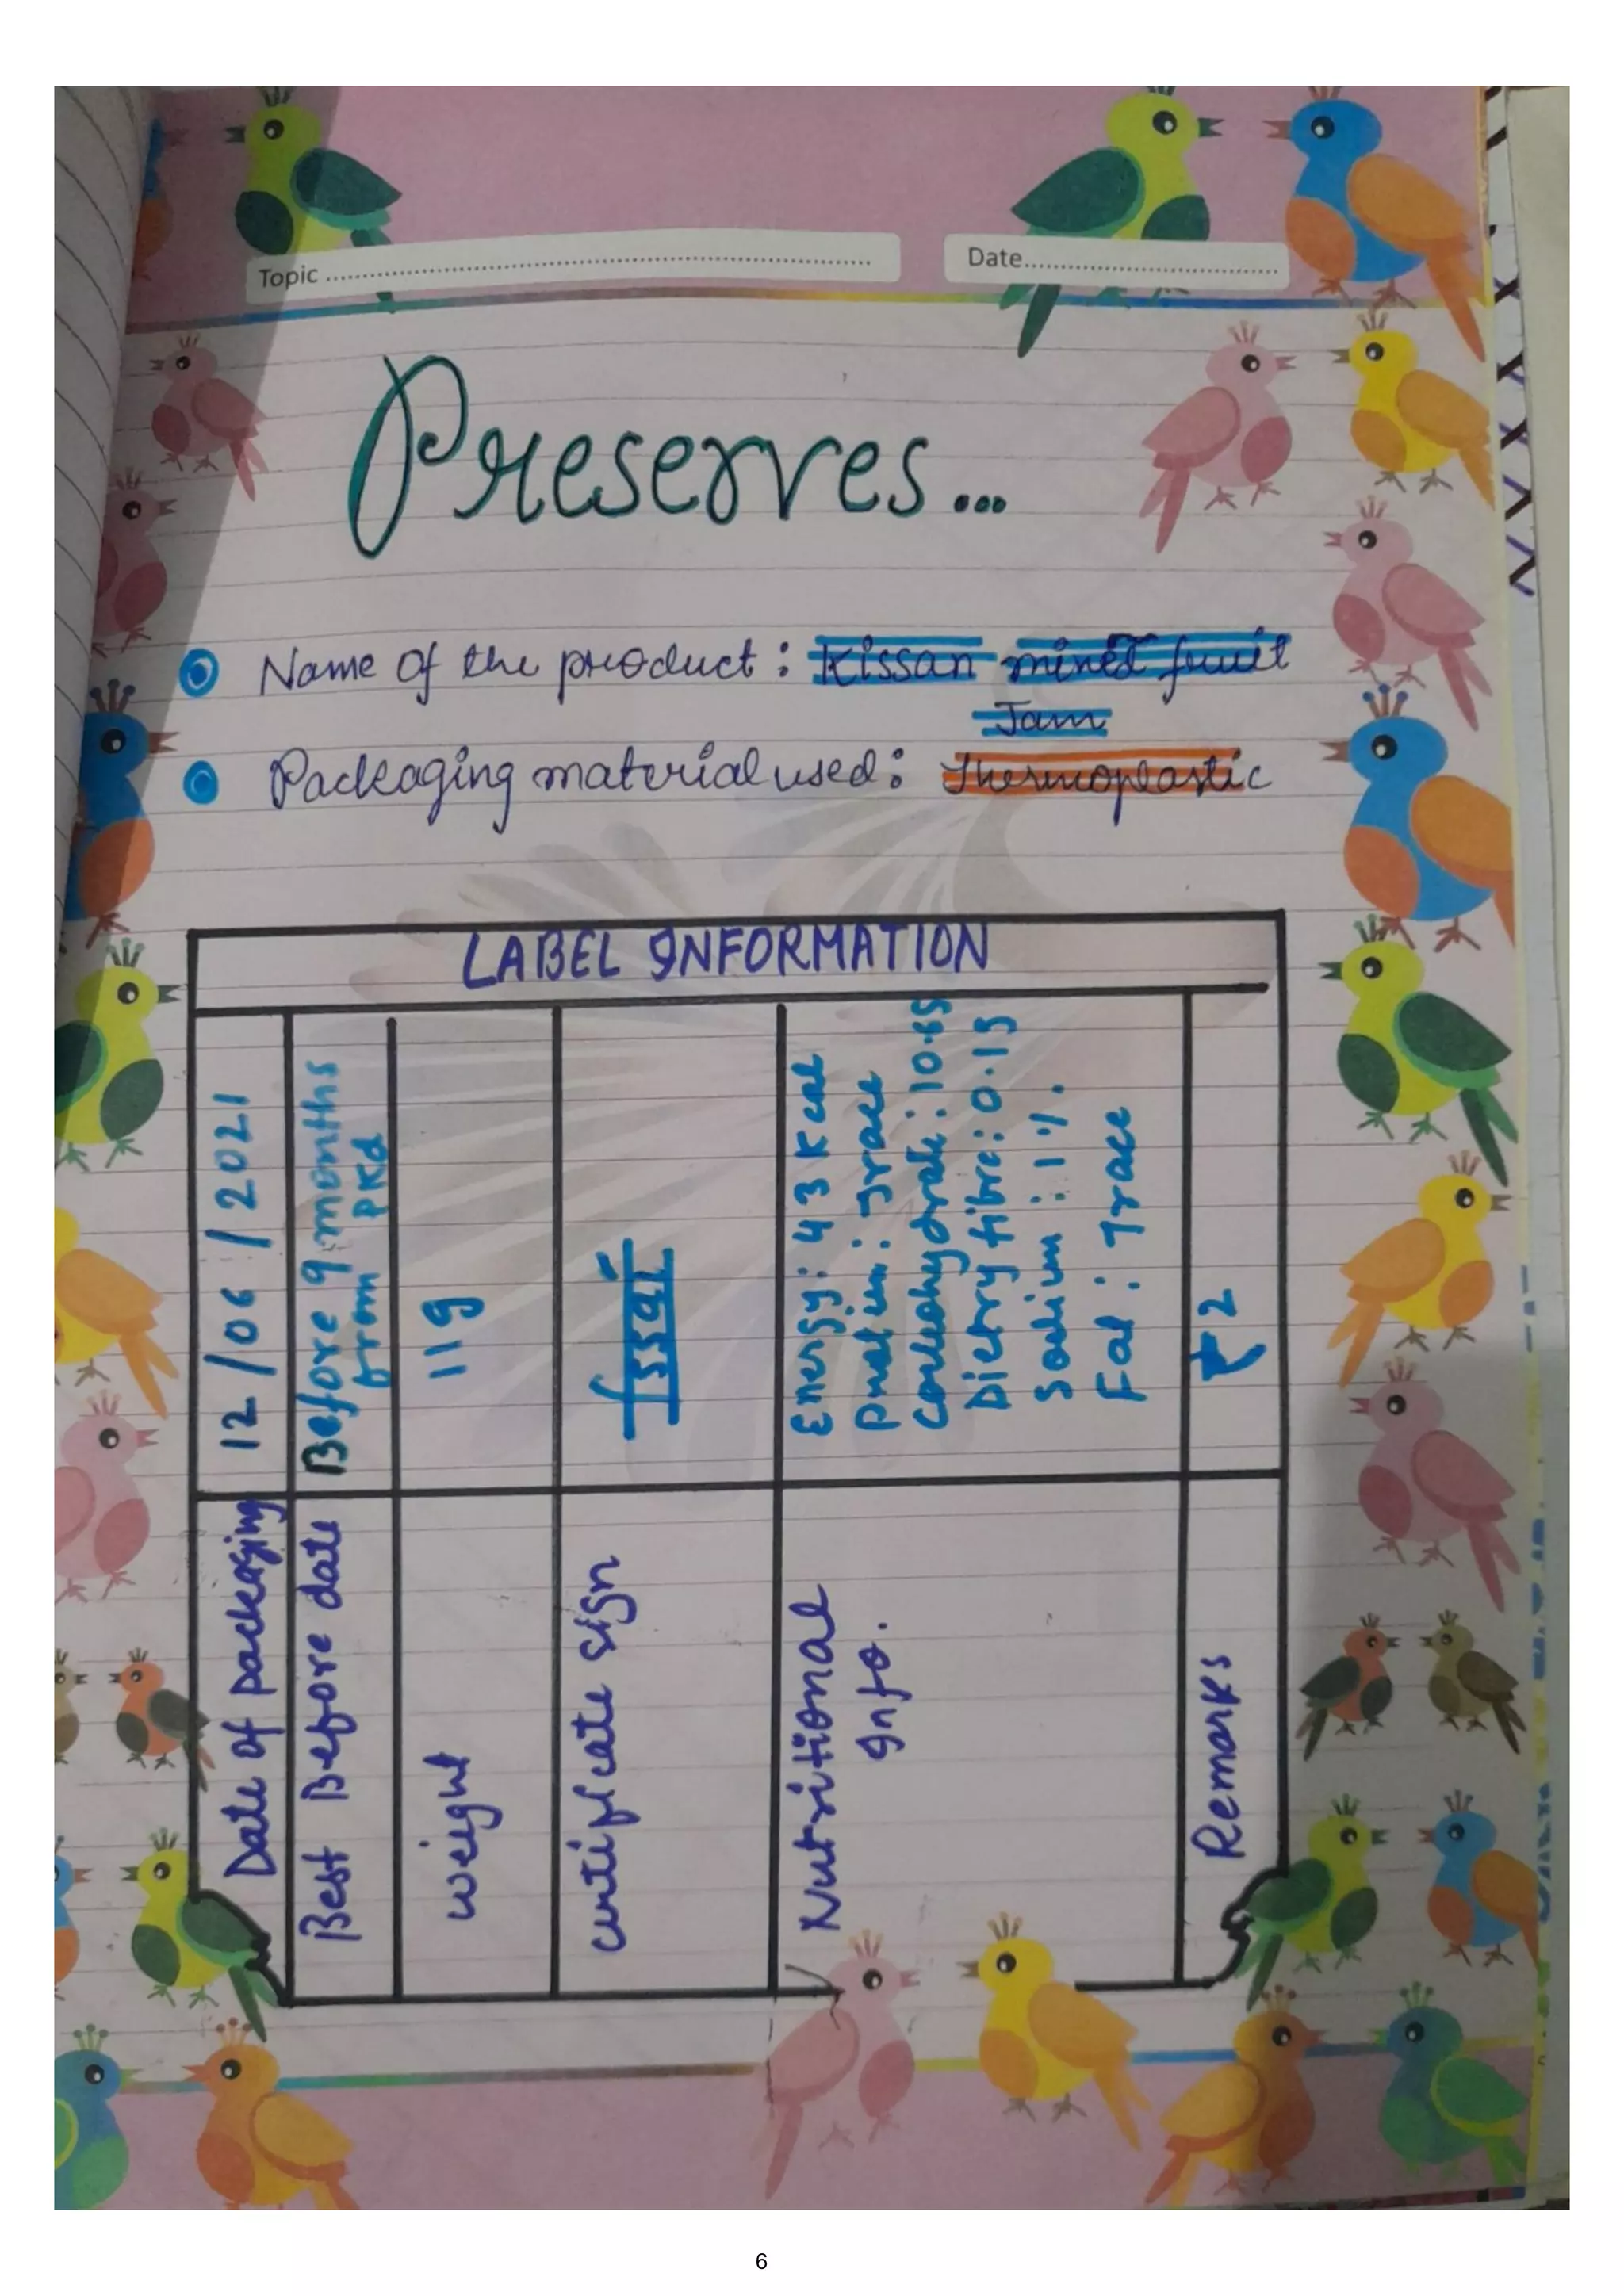 Topic
Date
Preserves...
Name of the product : Kissan mixed fruit
Jam
Packaging material used : Thermoplastic
LABEL INFORMATION
Date of packaging 12/06/2021
Best Before date Before 9 months
from PKd
weight 11g
certificate sign fssai
Nutritional
Info.
Energy : 43 Kcal
Protien : Trace
Carbohydrate : 10.6g
Dietry fibre : 0.1g
Sodium : 1%.
Fat : Trace
Remarks ₹ 2
6